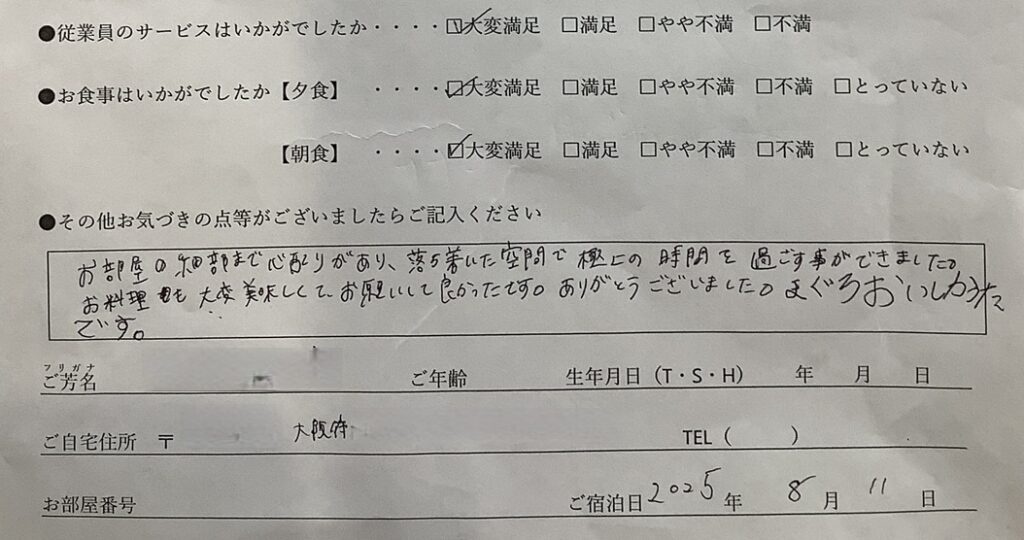 ●従業員のサービスはいかがでしたか・・・・☑大変満足 □満足 □やや不満 □不満
●お食事はいかがでしたか【夕食】 ・・・・☑大変満足 □満足 □やや不満 □不満 □とっていない
【朝食】 ・・・・☑大変満足 □満足 □やや不満 □不満 □とっていない
●その他お気づきの点等がございましたらご記入ください
お部屋の細部まで心配りがあり、落ち着いた空間で極上の時間を過ごす事ができました。
お料理も大変美味しくて、お願いして良かったです。ありがとうございました。まぐろおいしかった
です。
フリガナ
ご芳名 ご年齢 生年月日(T・S・H) 年 月 日
ご自宅住所 〒 大阪府 TEL( )
お部屋番号 ご宿泊日 2025年 8月 11日